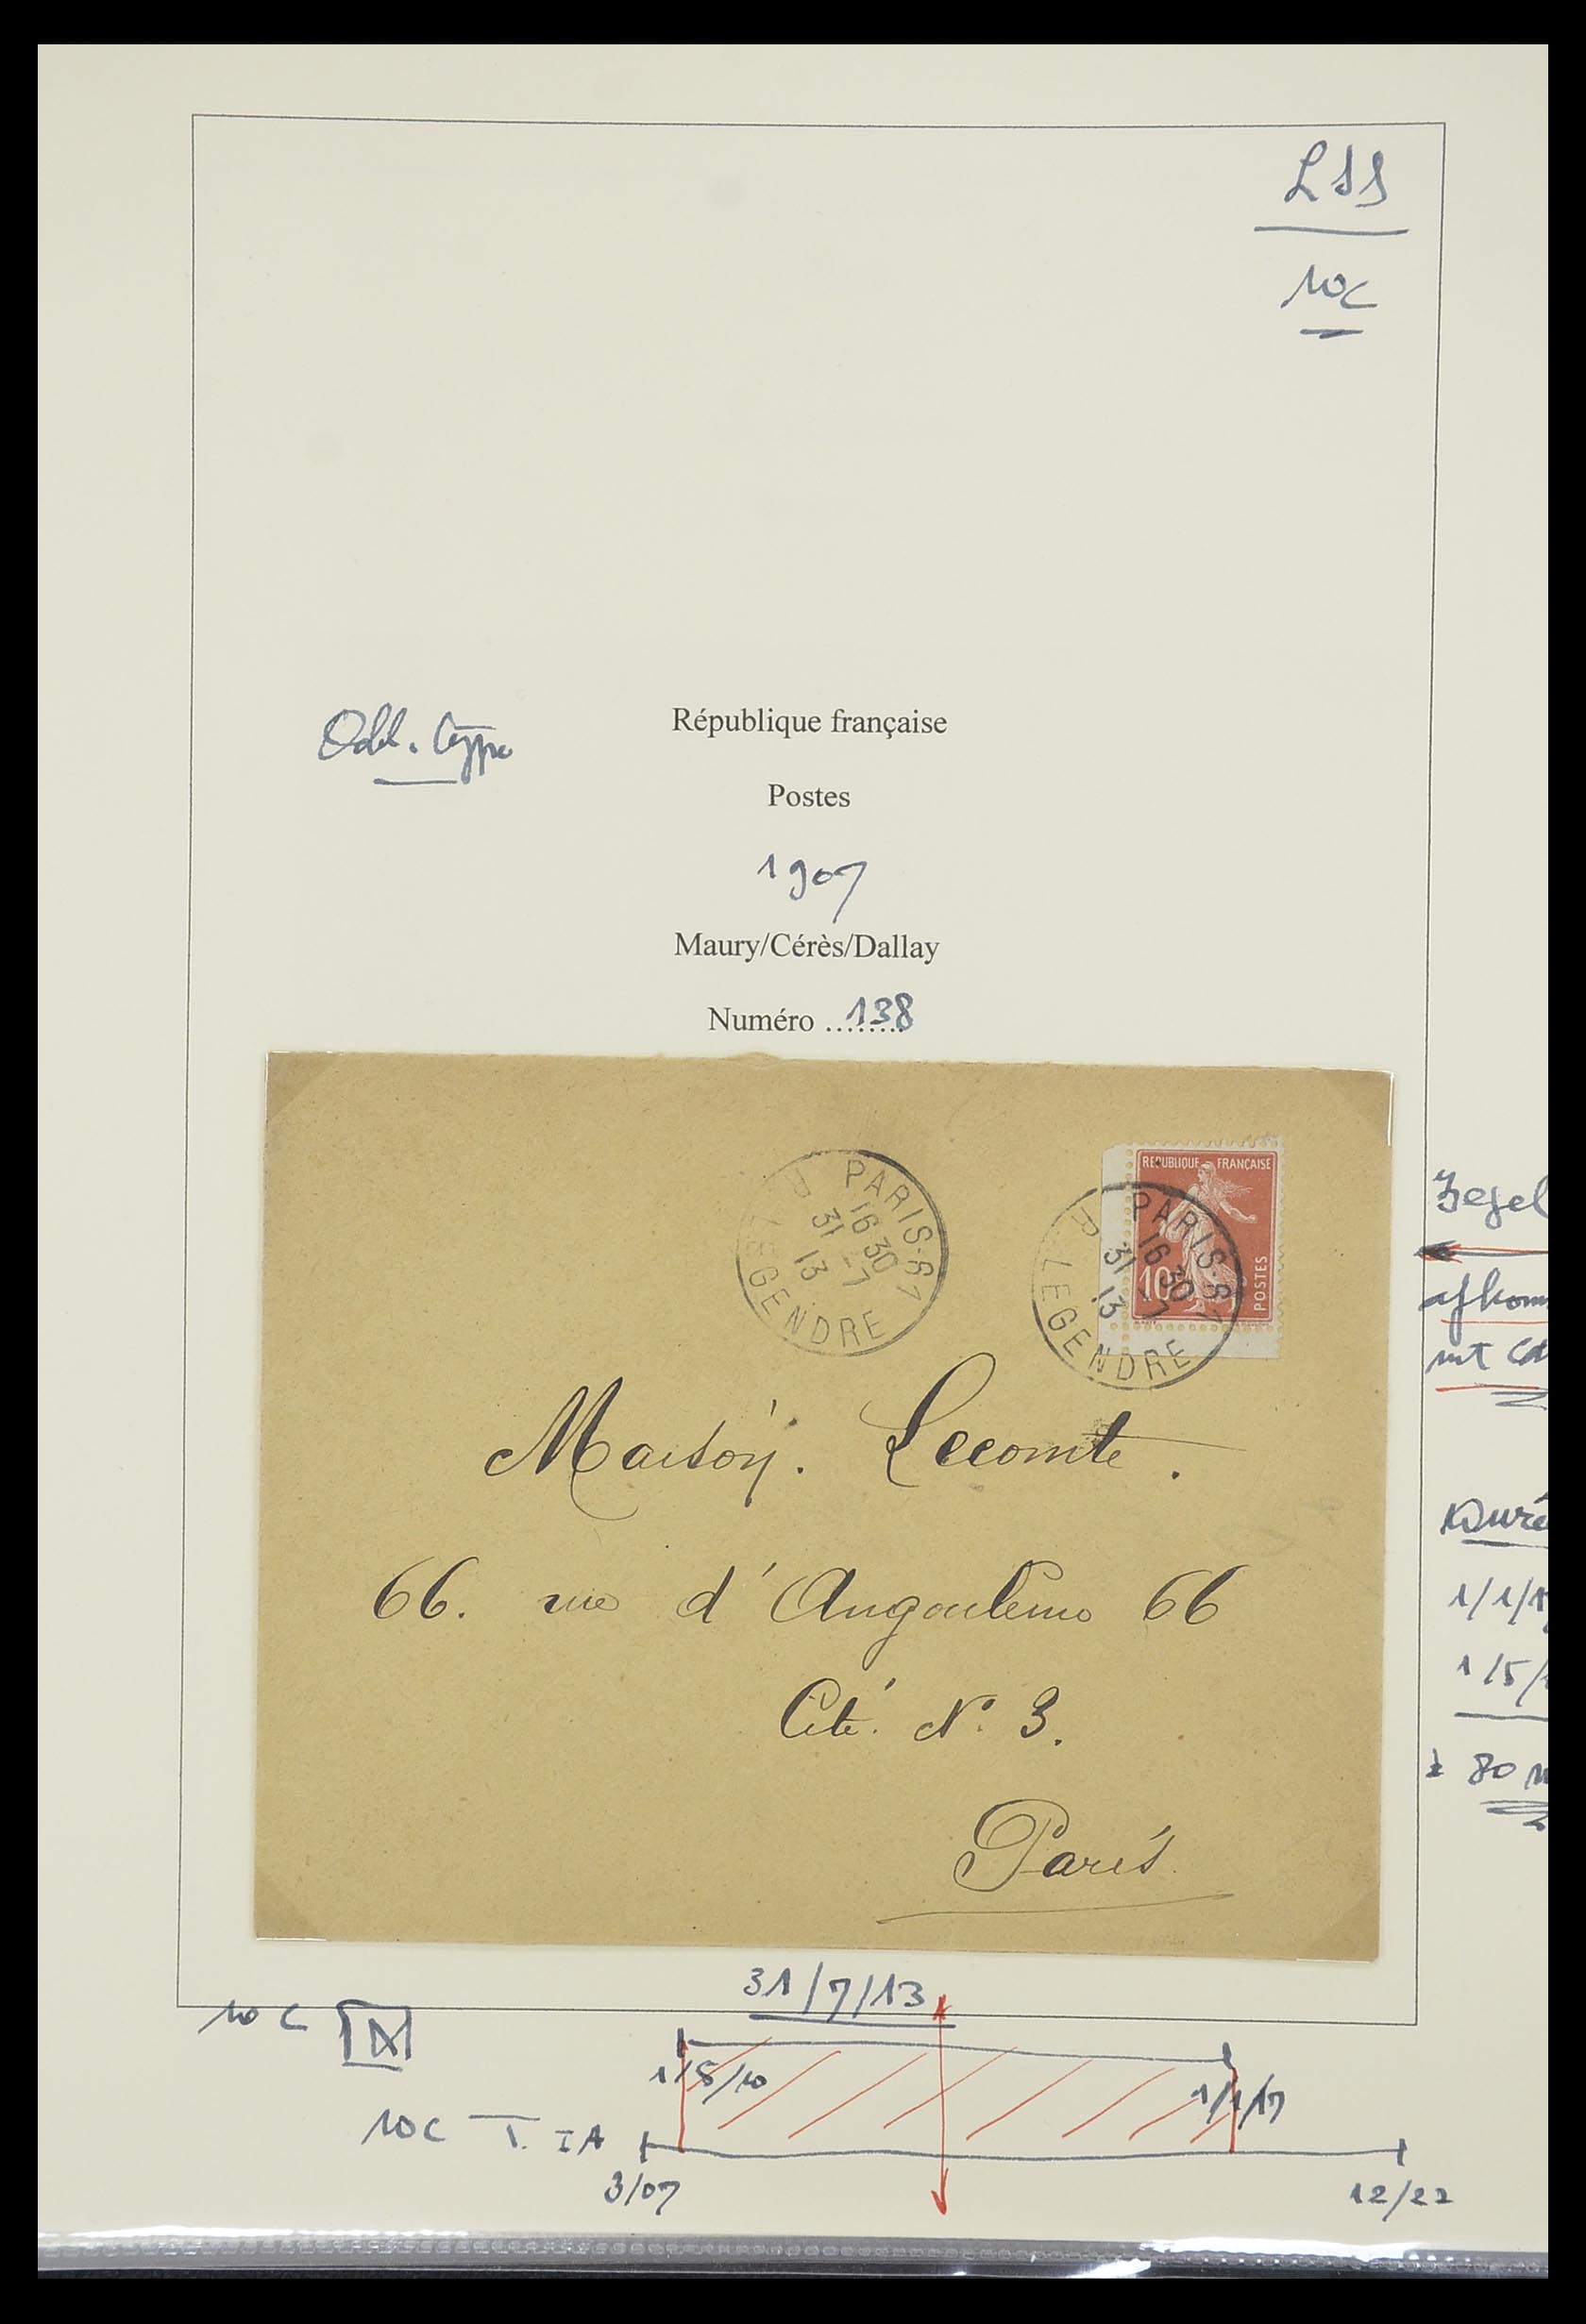 LSS
10c
République française
Postes
1907
Maury/Cérès/Dallay
Numéro ........138
REPUBLIQUE FRANÇAISE
10
POSTES
PARIS-67
16 30
31 -7
13
LEGENDRE
PARIS-67
16 30
31 -7
13
LEGENDRE
Maison. Lecomte.
66. rue d'Angoulème 66
Cité. N° 3.
Paris
Zegel
afkom
Duré
1/1/1
1/5/
± 80 m
31/7/13
10 C
1/8/10
1/1/17
10C T. IA
3/07
12/22